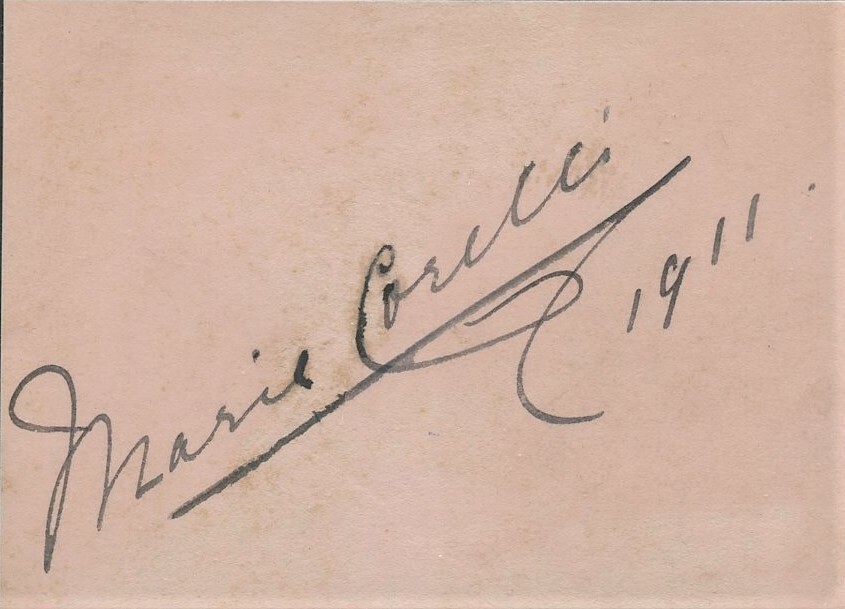 Marie Corelli
1911.